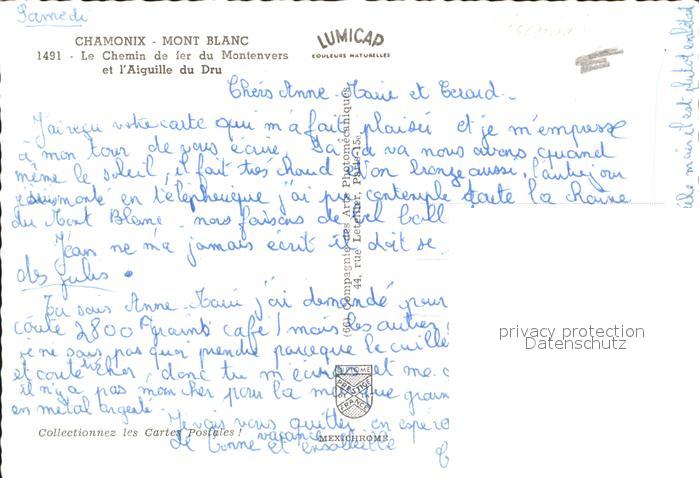 Samedi
CHAMONIX - MONT BLANC
1491 - Le Chemin de fer du Montenvers
et l'Aiguille du Dru
LUMICAP
COULEURS NATURELLES
Chers Anne-Marie et Gérard.
J'ai reçu votre carte qui m'a fait plaisir et je m'empresse
à mon tour de vous écrire. va nous avons quand
même le soleil, il fait très chaud bronze aussi. l'autre jour
monté en téléphérique j'ai pu contempler toute la chaîne
du Mont Blanc. nous faisons de bel
Jean ne m'a jamais écrit il doit se
des jules.
Tu sais Anne Marie j'ai demandé pour
coute 2800F mais les autres
je ne sais pas quoi prendre parceque la
et coute cher, donc tu m'écris et me
il n'y a pas moncher pour la
en métal argenté.
Je vais vous quitter en
vacances
de bonne et ensoleillé
(66) Compagnie des Arts Photomécaniques
44, rue Letellier, Paris-15e
DIPLOME
PRESTIGE
FRANCE
MEXICHROME
Collectionnez les Cartes Postales !
mais il est plutot
privacy protection
Datenschutz